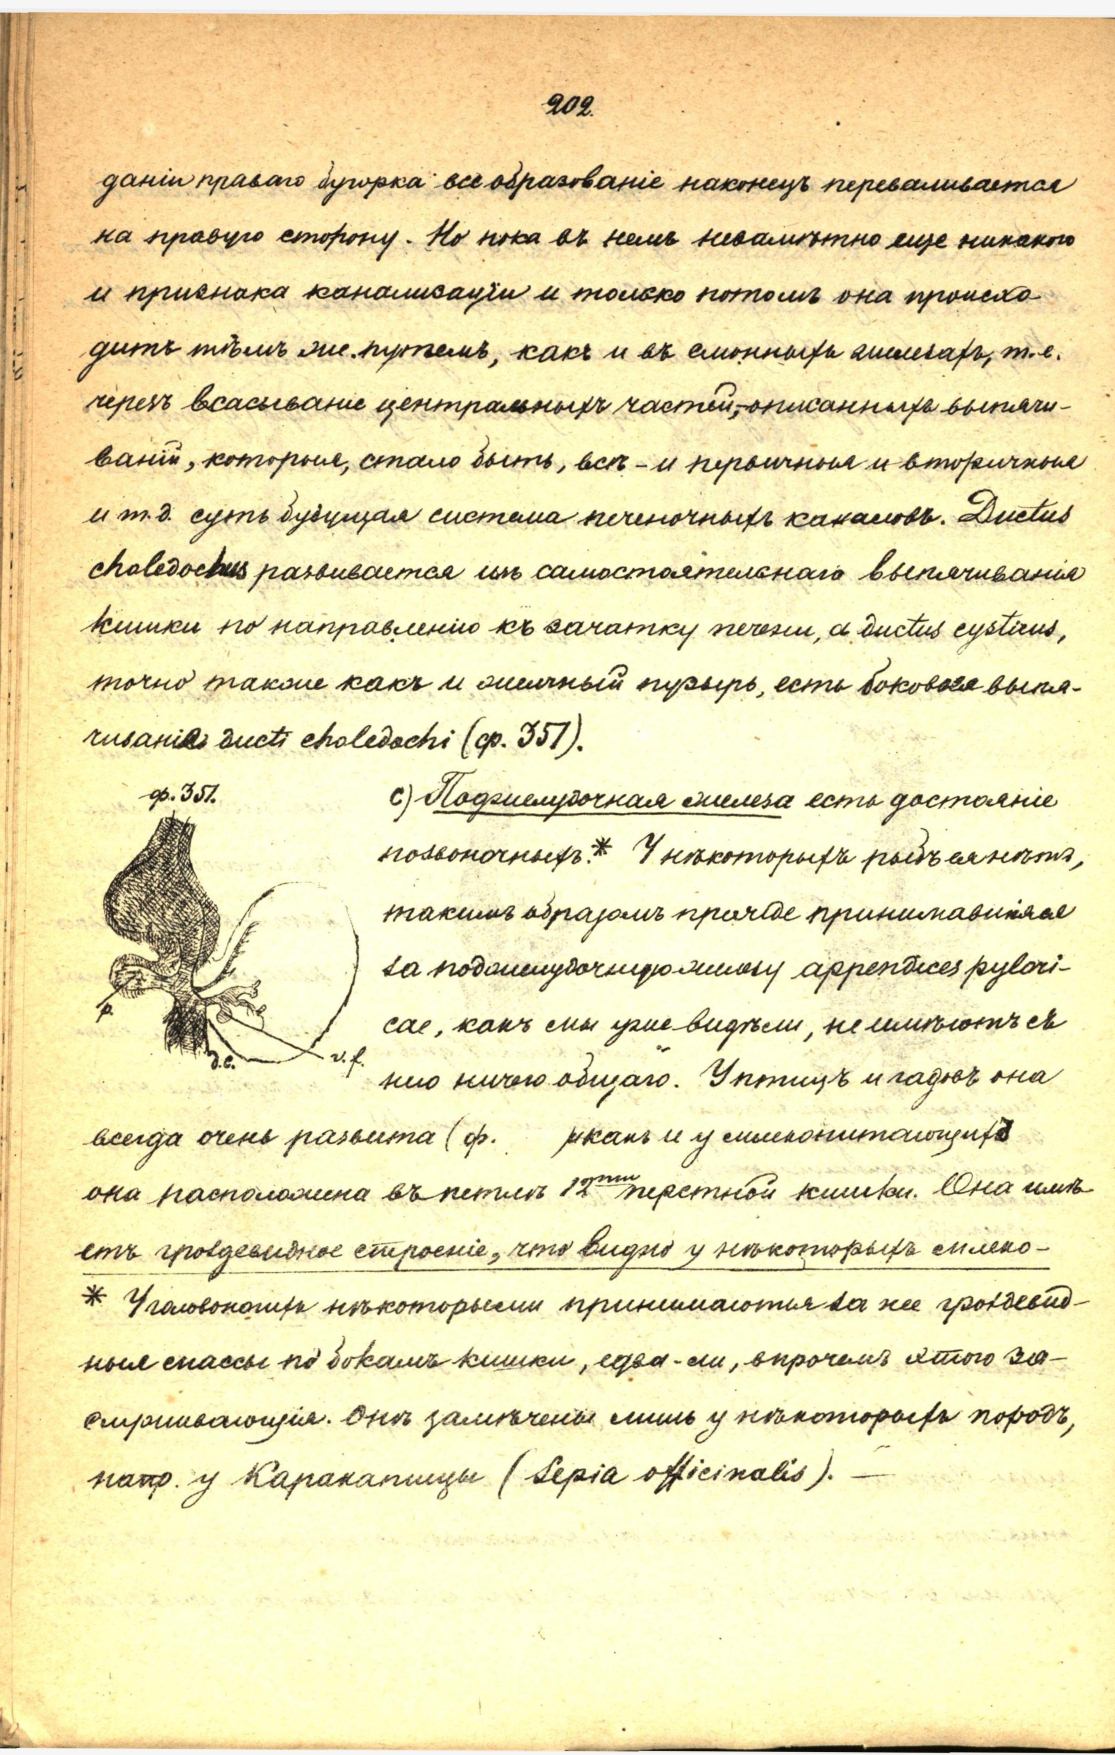 202.
даніи праваго бугорка все образованіе наконецъ переваливается
на правую сторону. Но пока въ немъ незамѣтно еще никакого
и признака канализаціи и только потомъ она происхо-
дитъ тѣмъ же путемъ, какъ и въ слюнныхъ железахъ, т.е.
черезъ всасываніе центральныхъ частей, описанныхъ выпячи-
ваній, которыя, стало быть, всѣ - и первичныя и вторичныя
и т.д. суть будущая система печеночныхъ каналовъ. Ductus
choledochus развивается изъ самостоятельнаго выпячиванія
кишки по направленію къ зачатку печени, а ductus cysticus,
точно также какъ и желчный пузырь, есть боковое выпя-
чиваніе ducti choledochi (ф. 351).
ф. 351.
p.
d.c.
v.f.
с) Поджелудочная железа есть достояніе
позвоночныхъ.* У нѣкоторыхъ рыбъ ея нѣтъ,
такимъ образомъ прежде принимавшіяся
за поджелудочную железу appendices pylori-
cae, какъ мы уже видѣли, не имѣютъ съ
нею ничего общаго. У птицъ и гадовъ она
всегда очень развита (ф. какъ и у млекопитающихъ
она расположена въ петлѣ 12ти перстной кишки. Она имѣ-
етъ гроздевидное строеніе, что видно у нѣкоторыхъ млеко-
* У головоногихъ нѣкоторыми принимаются за нее гроздевид-
ныя массы по бокамъ кишки, едва-ли, впрочемъ этого за-
служивающія. Онѣ замѣчены лишь у нѣкоторыхъ породъ,
напр. у Каракатицы (Sepia officinalis). —